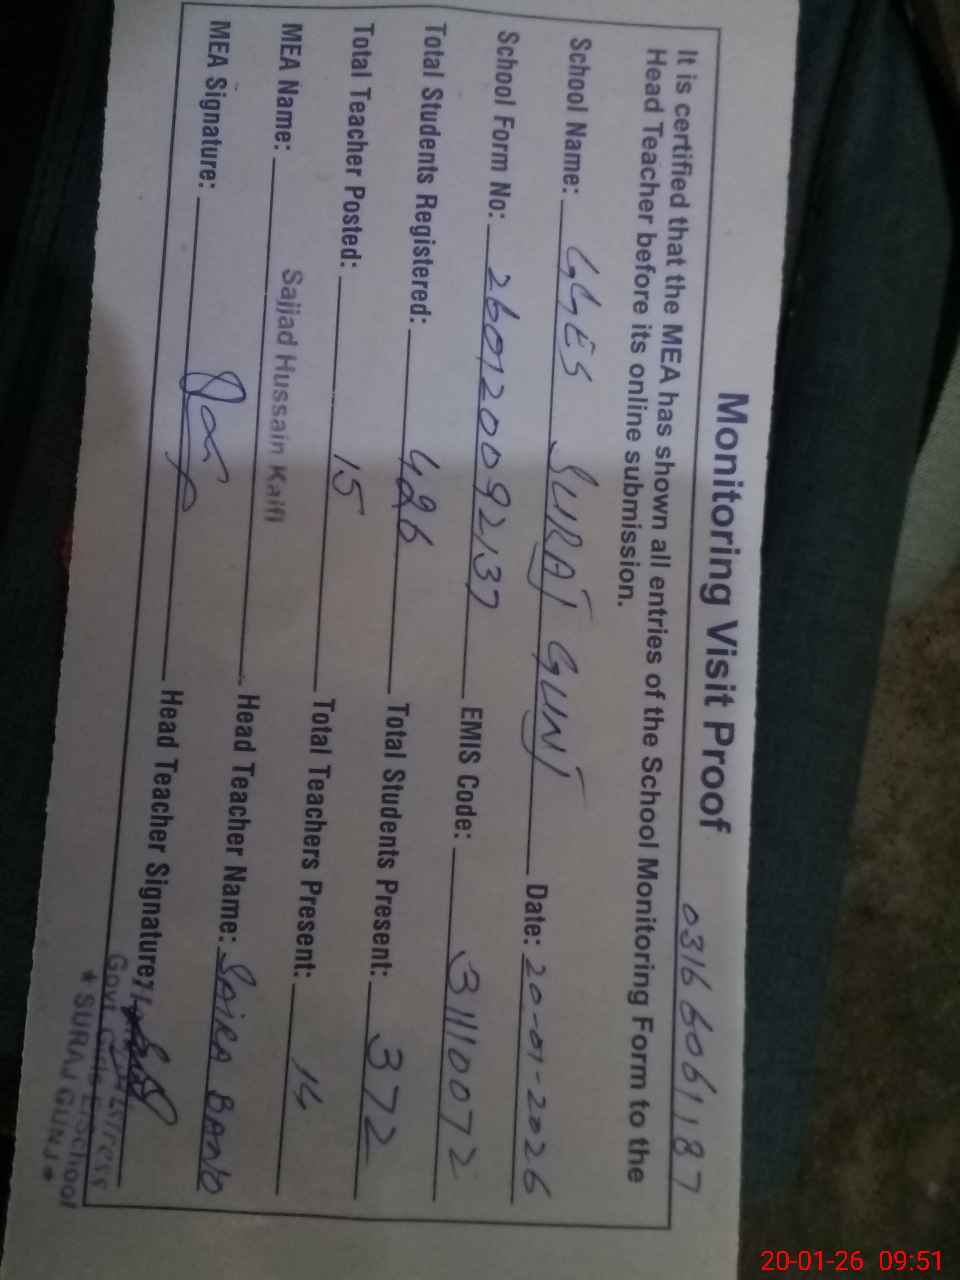 Monitoring Visit Proof 0316 6061187
It is certified that the MEA has shown all entries of the School Monitoring Form to the
Head Teacher before its online submission.
School Name: GGES SURAJ GUNJ Date: 20-01-2026
School Form No: 260120092137 EMIS Code: 31110072
Total Students Registered: 426 Total Students Present: 372
Total Teacher Posted: 15 Total Teachers Present: 14
MEA Name: Sajjad Hussain Kaifi Head Teacher Name: SAIRA BANO
MEA Signature: Head Teacher Signature:
Govt
* SURAJ GUNJ *
20-01-26 09:51